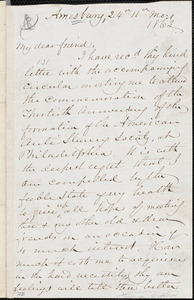 Amesbury, 24th 11th Mo.
1863
My dear friend,
I have recd thy kind
letter with the accompanying
circular inviting me to attend
the Commemoration of the
Thirtieth Anniversary of the
formation of the American
Anti Slavery Society, at
Philadelphia. It is with
the deepest regret that I
am compelled by the
feeble state of my health
to give up all hope of meeting
thee & my other old & dear
friends on an occasion of
so much interest. How
much it costs me to acquiesce
in the hard necessity thy own
feelings will tell thee better